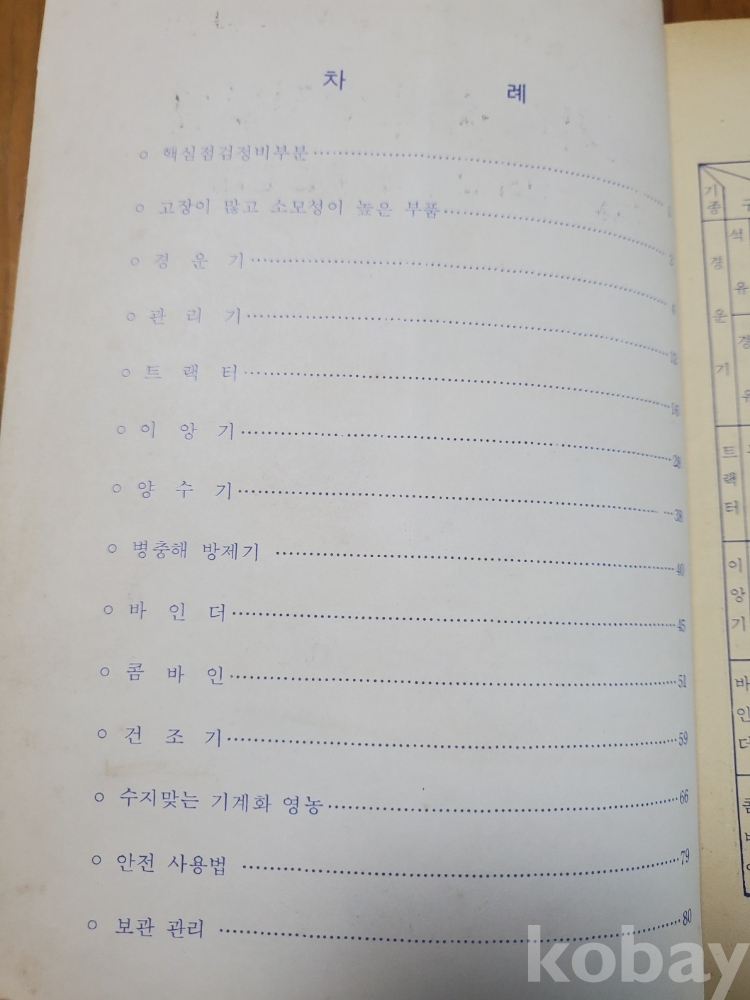 차 례
○ 핵심점검정비부분 1
○ 고장이 많고 소모성이 높은 부품 3
○ 경 운 기
○ 관 리 기 12
○ 트 랙 터 16
○ 이 앙 기 28
○ 양 수 기 38
○ 병충해 방제기 40
○ 바 인 더 45
○ 콤 바 인 51
○ 건 조 기 59
○ 수지맞는 기계화 영농 66
○ 안전 사용법 79
○ 보관 관리 80
기종
경운기
석
유
경
유
트랙터
이앙기
바인더
콤
kobay